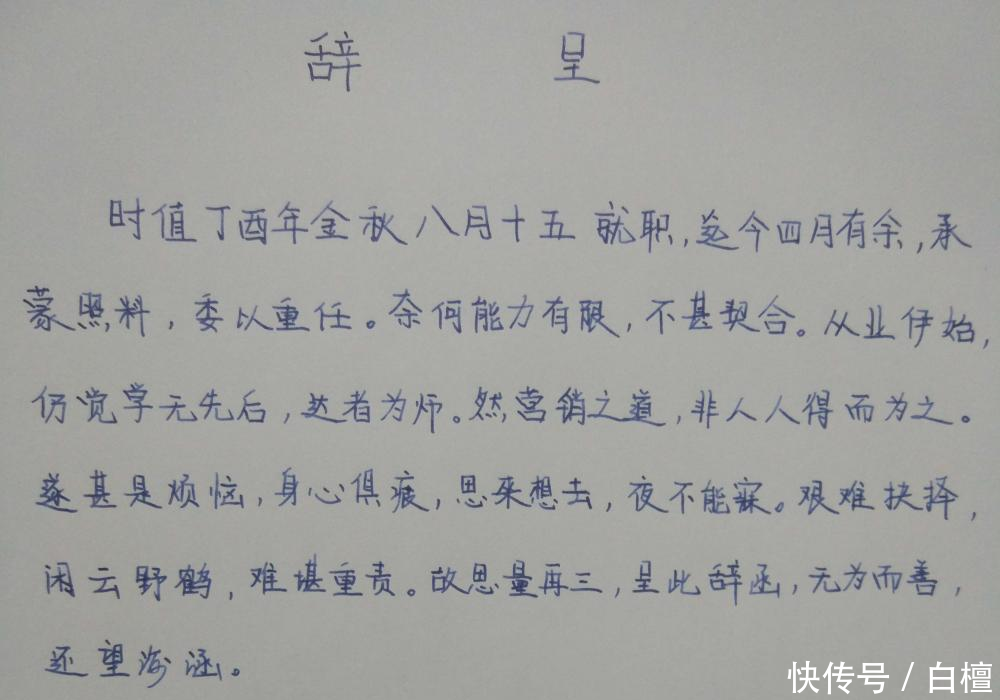 辞 呈
时值丁酉年金秋八月十五就职,迄今四月有余,承
蒙照料,委以重任。奈何能力有限,不甚契合。从业伊始,
仍觉学无先后,达者为师。然营销之道,非人人得而为之。
遂甚是烦恼,身心俱疲,思来想去,夜不能寐。艰难抉择,
闲云野鹤,难堪重责。故思量再三,呈此辞函,无为而善,
还望海涵。
快传号 / 白檀